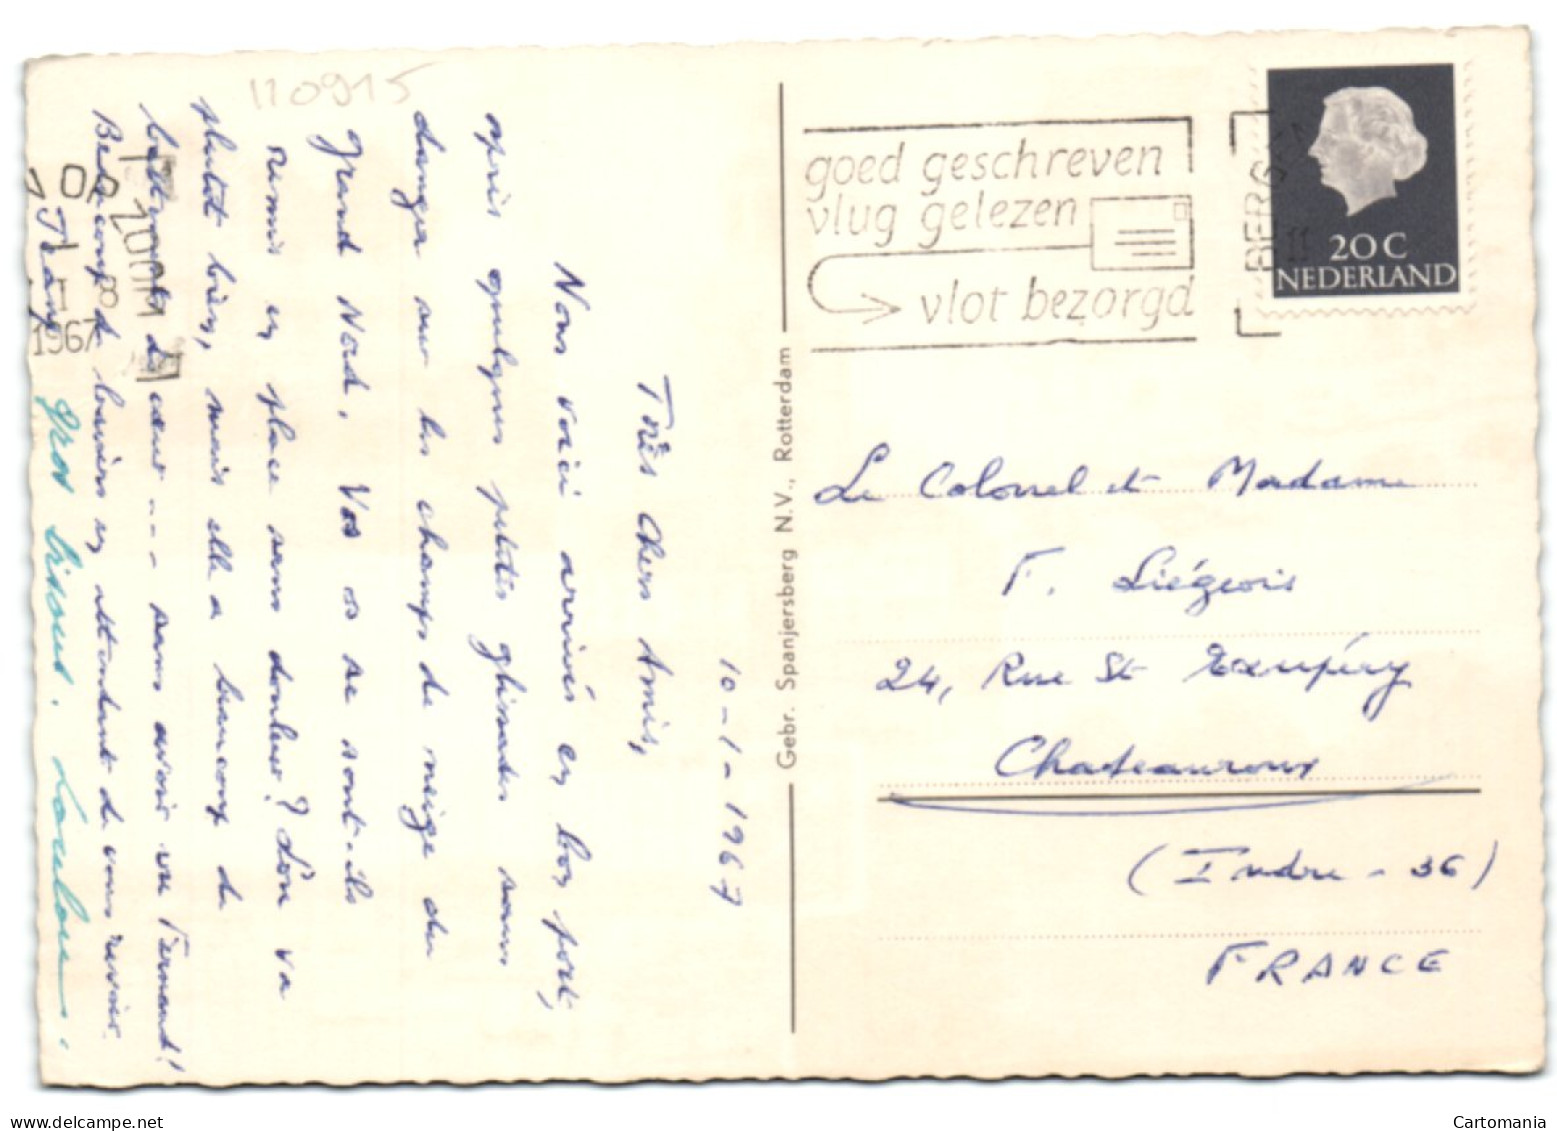 110915
10-1-1967
Très Chers Amis,
Nous voici arrivés en bon port,
après quelques petites glissades sans
danger sur les champs de neige du
Grand Nord. Vos os se sont-ils
remis en place sans douleur? Lou va
plutôt bien, mais elle a beaucoup de
battements de cœur --- sans avoir vu Fernand!
Beaucoup de baisers en attendant de vous revoir.
Gros bisous. Loulou.
OP ZOOM
1967
goed geschreven
vlug gelezen
vlot bezorgd
BERG
11
20 C
NEDERLAND
Gebr. Spanjersberg N.V., Rotterdam
Le Colonel et Madame
F. Liégeois
24, Rue St Exupéry
Chateauroux
(Indre - 36)
FRANCE
www.delcampe.net
Cartomania